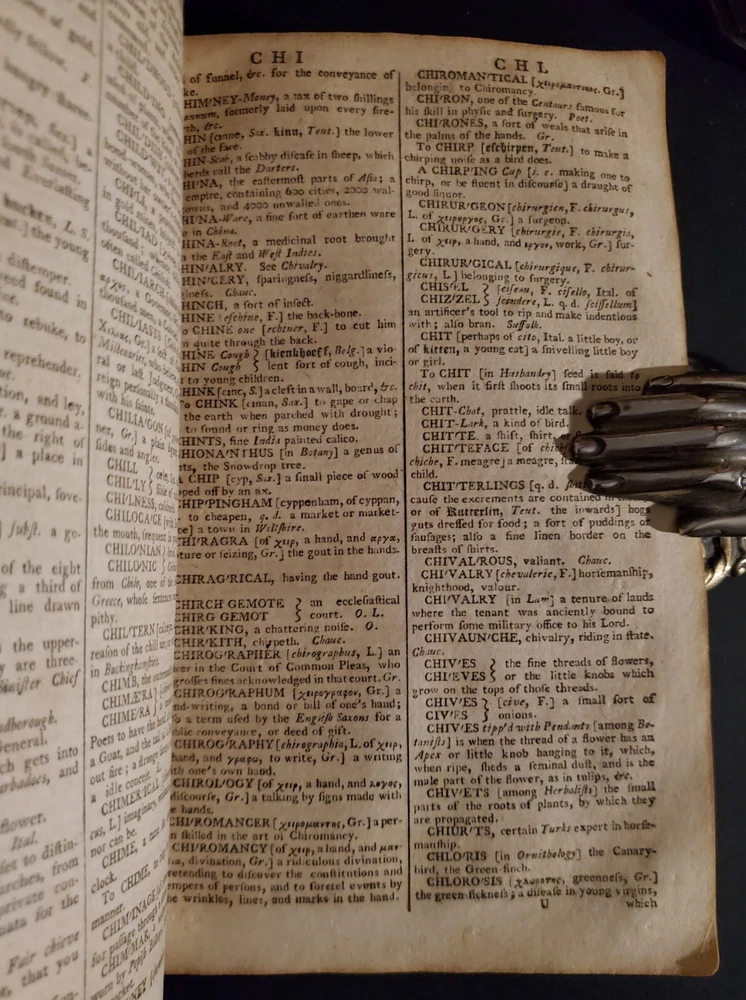 hungry
Everlasting
diſtemper.
reed found in
to rebuke, to
reprehender.
a ground
the right of
a place in
rincipal, ſove-
ſubſt. a ge-
of the eight
a third of
line drawn
the upper-
y are three-
Siniſter Chief
General.
ch gets into
flower.
Ital.
private con-
Fair chieve
that you
CHILIA'GON
ſides and angles.
CHILL
CHI'LY
CHI'LNESS,
CHILOCA'CE
the mouth, frequent
CHILO'NIAN
CHILO'NIC
from Chilo, one of
Greece, whoſe ſentences
pithy.
CHIL'TERN
reaſon of the chill
in Buckinghamſhire.
CHIMB, the
CHIMÆ'RA
CHIME'RA
Poets to have the
a Goat, and the
out fire; a ſtrange
a idle conceit.
CHIME'RICAL
cas, L.] imaginary,
nor can be.
CHIME, a tune
clock.
To CHIME,
manner.
CHIM'INAGE
for paſſage through
CHIM'MAR,
worn by Popiſh Biſhops
CHI
of funnel, &c. for the conveyance of
ke.
HIM'NEY-Money, a tax of two ſhillings
annum, formerly laid upon every fire-
th, &c.
HIN [cinne, Sax. kinu, Teut.] the lower
of the face.
HIN-Scab, a ſcabby diſeaſe in ſheep, which
herds call the Darters.
HI'NA, the eaſtermoſt parts of Aſia; a
empire, containing 600 cities, 2000 wal-
owns, and 4000 unwalled ones.
HI'NA-Ware, a fine ſort of earthen ware
e in China.
HINA-Root, a medicinal root brought
the Eaſt and Weſt Indies.
HIN'ALRY. See Chivalry.
HIN'CERY, ſparingneſs, niggardlineſs,
gineſs. Chauc.
HINCH, a ſort of inſect.
HINE [eſchine, F.] the back-bone.
o CHINE one [echiner, F.] to cut him
n quite through the back.
HINE Cough } [kienkhoeſt, Belg.] a vio-
HIN Cough } lent ſort of cough, inci-
t to young children.
HINK [cinc, S.] a cleft in a wall, board, &c.
o CHINK [cinan, Sax.] to gape or chap
the earth when parched with drought;
to ſound or ring as money does.
HINTS, fine India painted calico.
HIONA'NTHUS [in Botany] a genus of
ts, the Snowdrop tree.
A CHIP [cyp, Sax.] a ſmall piece of wood
pped off by an ax.
HIP'PINGHAM [cyppenham, of cyppan,
to cheapen, q. d. a market or market-
ce] a town in Wiltſhire.
HI'RAGRA [of χειρ, a hand, and αγρα,
ture or ſeizing, Gr.] the gout in the hands.
CHIRAG'RICAL, having the hand gout.
CHIRCH GEMOTE } an eccleſiaſtical
CHIRG GEMOT } court. O. L.
CHIR'KING, a chattering noiſe. O.
CHIR'KITH, chirpeth. Chauc.
CHIROG'RAPHER [chirographus, L.] an
icer in the Court of Common Pleas, who
groſſes fines acknowledged in that court. Gr.
CHIROG'RAPHUM [χειρογραφον, Gr.] a
nd-writing, a bond or bill of one's hand;
ſo a term uſed by the Engliſh Saxons for a
blic conveyance, or deed of gift.
CHIROG'RAPHY [chirographia, L. of χειρ,
hand, and γραφω, to write, Gr.] a writing
ith one's own hand.
CHIROL'OGY [of χειρ, a hand, and λογος,
diſcourſe, Gr.] a talking by ſigns made with
e hands.
CHI'ROMANCER [χειρομαντης, Gr.] a per-
n ſkilled in the art of Chiromancy.
CHI'ROMANCY [of χειρ, a hand, and μαν-
εια, divination, Gr.] a ridiculous divination,
retending to diſcover the conſtitutions and
mpers of perſons, and to foretel events by
he wrinkles, lines, and marks in the hand.
CHL
CHIROMAN'TICAL [χειρομαντικος, Gr.]
belonging to Chiromancy.
CHI'RON, one of the Centaurs famous for
his ſkill in phyſic and ſurgery. Poet.
CHI'RONES, a ſort of weals that ariſe in
the palms of the hands. Gr.
To CHIRP [eſchirpen, Teut.] to make a
chirping noiſe as a bird does.
A CHIRP'ING Cup [i. e. making one to
chirp, or be fluent in diſcourſe] a draught of
good liquor.
CHIRUR'GEON [chirurgien, F. chirurgus,
L. of χειρουργος, Gr.] a ſurgeon.
CHIRUR'GERY [chirurgie, F. chirurgia,
L. of χειρ, a hand, and εργον, work, Gr.] ſur-
gery.
CHIRUR'GICAL [chirurgique, F. chirur-
gicus, L.] belonging to ſurgery.
CHIS'EL } [ciſeau, F. ciſello, Ital. of
CHIZ'ZEL } ſcondere, L. q. d. ſciſſellum]
an artificer's tool to rip and make indentions
with; alſo bran. Suffolk.
CHIT [perhaps of cito, Ital. a little boy, or
of kitten, a young cat] a ſnivelling little boy
or girl.
To CHIT [in Husbandry] ſeed is ſaid to
chit, when it firſt ſhoots its ſmall roots into
the earth.
CHIT-Chat, prattle, idle talk.
CHIT-Lark, a kind of bird.
CHIT'TE, a ſhift, ſhirt, or
CHIT'TEFACE [of chich
chiche, F. meagre] a meagre,
child.
CHIT'TERLINGS [q. d.
cauſe the excrements are contained in
or of Kutterlin, Teut. the inwards] hogs
guts dreſſed for food; a ſort of puddings or
ſauſages; alſo a fine linen border on the
breaſts of ſhirts.
CHIVAL'ROUS, valiant. Chauc.
CHI'VALRY [chevalerie, F.] horſemanſhip,
knighthood, valour.
CHI'VALRY [in Law] a tenure of lands
where the tenant was anciently bound to
perform ſome military office to his Lord.
CHIVAUN'CHE, chivalry, riding in ſtate.
Chauc.
CHIV'ES } the fine threads of flowers,
CHI'EVES } or the little knobs which
grow on the tops of thoſe threads.
CHIV'ES } [cive, F.] a ſmall ſort of
CIV'ES } onions.
CHIV'ES tipp'd with Pendants [among Bo-
taniſts] is when the thread of a flower has an
Apex or little knob hanging to it, which,
when ripe, ſheds a ſeminal duſt, and is the
male part of the flower, as in tulips, &c.
CHIV'ETS [among Herbaliſts] the ſmall
parts of the roots of plants, by which they
are propagated.
CHIUR'TS, certain Turks expert in horſe-
manſhip.
CHLO'RIS [in Ornithology] the Canary-
bird, the Green-finch.
CHLORO'SIS [χλωροτης, greenneſs, Gr.]
the green-ſickneſs; a diſeaſe in young virgins,
U which